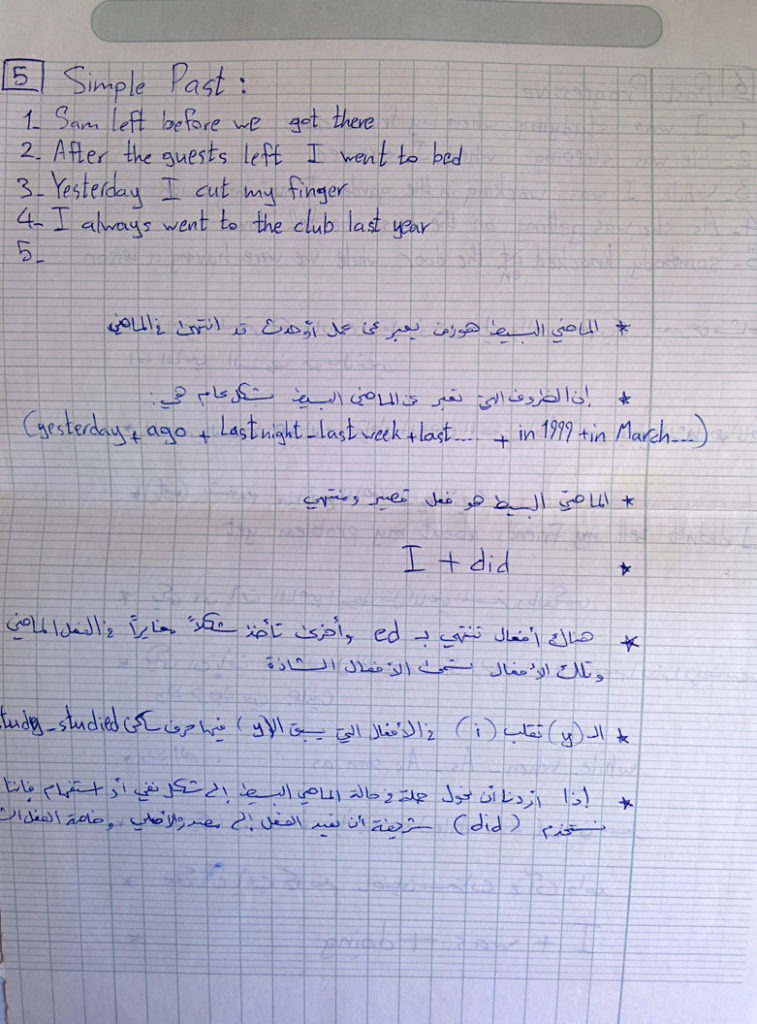 5 Simple Past :
1- Sam left before we got there
2- After the guests left I went to bed
3- Yesterday I cut my finger
4- I always went to the club last year
5-
* الماضي البسيط هو زمن يعبر عن عمل أو حدث قد انتهى في الماضي
* إن الظروف التي تعبر عن الماضي البسيط بشكل عام هي :
(yesterday + ago + Last night - last week + last .... + in 1999 + in March ....)
* الماضي البسيط هو فعل قصير ومنتهي
* I + did
* هناك أفعال تنتهي بـ ed وأخرى تأخذ شكلاً مغايراً في الفعل الماضي
وتلك الأفعال تسمى الأفعال الشاذة
* الـ (y) تقلب (i) في الأفعال التي يسبق الـ (y) فيها حرف ساكن study - studied
* إذا أردنا أن نحول جملة في حالة الماضي البسيط إلى شكل نفي أو استفهام فإننا
نستخدم (did) شريطة أن نعيد الفعل إلى مصدره الأصلي وخاصة